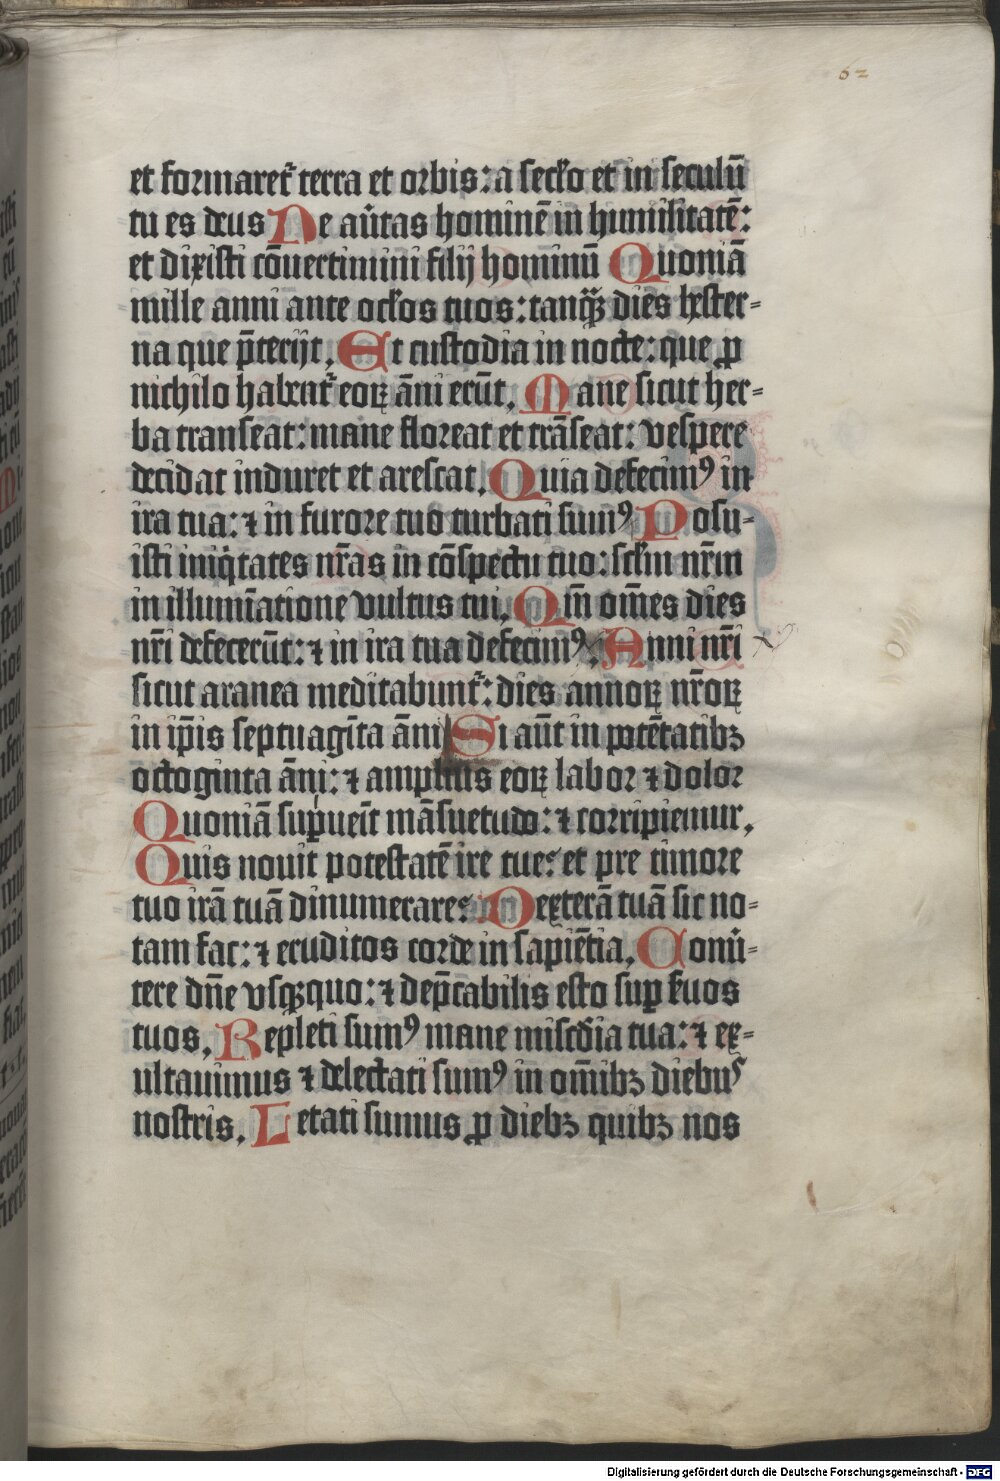 62
et formaret᷑ terra et orbis: a secło et in seculū
tu es deus Ne au̇tas hominē in humilitatē:
et dixisti cōuertimini filij hominū Quoniā
mille anni ante ocłos tuos: tanqꝫ dies hester-
na que p̄terijt. Et custodia in nocte: que ꝓ
nichilo habent᷑ eoꝝ āni erūt. Mane sicut her-
ba transeat: mane floreat et trāseat: vespere
decidat induret et arescat. Quia defecimꝰ in
ira tua: ⁊ in furore tuo turbati sumꝰ Posu-
isti iniq̇tates nr̄as in cōspectu tuo: scłm nr̄m
in illumīatione vultus tui. Qm̄ om̄es dies
nr̄i defecerūt: ⁊ in ira tua defecimꝰ. Anni nr̄i
sicut aranea meditabunt᷑: dies annoꝝ nr̄oꝝ
in ip̄is septuagīta āni Si aūt in potētatibꝫ
octoginta āni: ⁊ amplius eoꝝ labor ⁊ dolor
Quoniā suꝑueīt māsuetudo: ⁊ corripiemur.
Quis nouit potestatē ire tue: et pre timore
tuo irā tuā dinumerare: Dexterā tuā sic no-
tam fac: ⁊ eruditos corde in sapiētia. Conu̇-
tere dn̄e vsqꝫquo: ⁊ dep̄cabilis esto suꝑ ẜuos
tuos. Repleti sumꝰ mane mis̄cdia tua: ⁊ ex-
ultauimus ⁊ delectati sumꝰ in om̄ibꝫ diebus
nostris. Letati sumus ꝓ diebꝫ quibꝫ nos
Digitalisierung gefördert durch die Deutsche Forschungsgemeinschaft - DFG